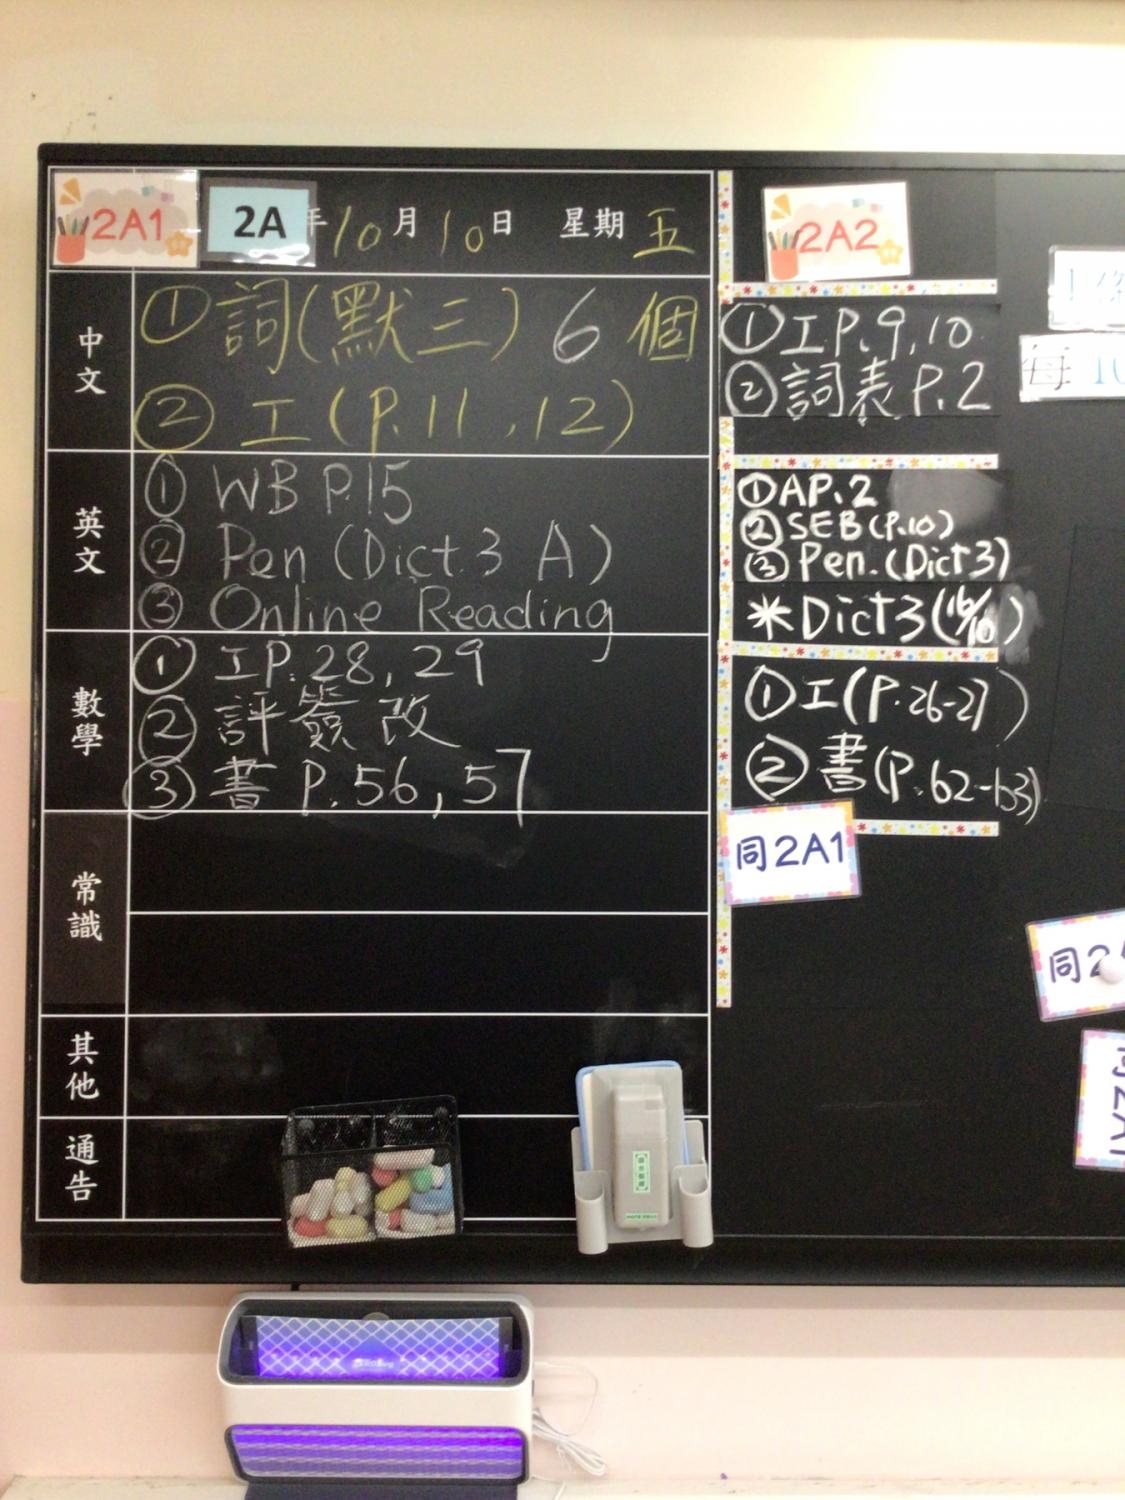 2A1
2A
年10月10日 星期五
中文
①詞(默三) 6個
②工(P.11,12)
英文
① WB P.15
② Pen (Dict.3 A)
③ Online Reading
數學
①工P.28,29
②評簽改
③書 P.56,57
常識
其他
通告
2A2
①工P.9,10
②詞表P.2
①AP.2
②SEB(P.10)
③Pen.(Dict3)
*Dict3(16/10)
①工(P.26-27)
②書(P.62-63)
同2A1
每10
同2